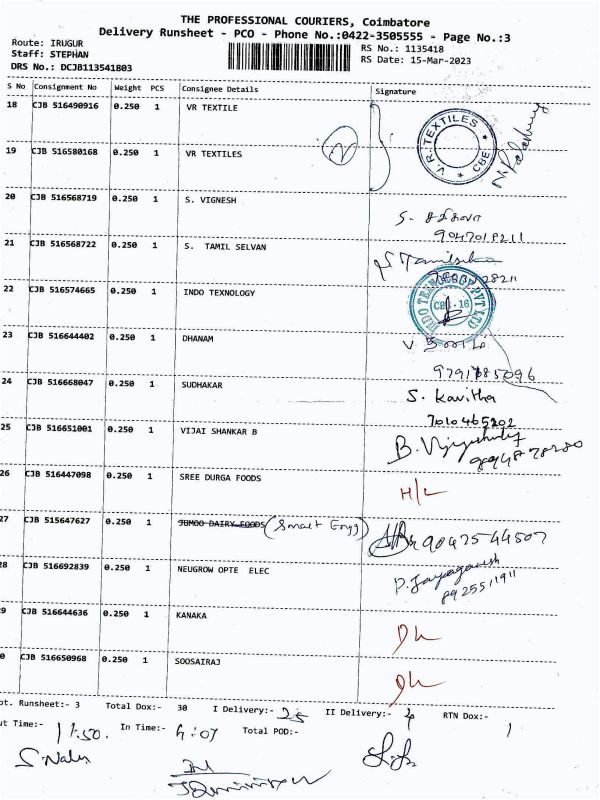 THE PROFESSIONAL COURIERS, Coimbatore
Delivery Runsheet - PCO - Phone No.:0422-3505555 - Page No.:3
Route: IRUGUR
Staff: STEPHAN
DRS No.: DCJB113541803
RS No.: 1135418
RS Date: 15-Mar-2023
S No Consignment No Weight PCS Consignee Details Signature
18 CJB 516490916 0.250 1 VR TEXTILE
V.R.TEXTILES * CBE *
19 CJB 516580168 0.250 1 VR TEXTILES
20 CJB 516568719 0.250 1 S. VIGNESH S.
9047018211
21 CJB 516568722 0.250 1 S. TAMIL SELVAN
22 CJB 516574665 0.250 1 INDO TEXNOLOGY
23 CJB 516644402 0.250 1 DHANAM V
24 CJB 516668047 0.250 1 SUDHAKAR S. Kavitha
7010465202
25 CJB 516651001 0.250 1 VIJAI SHANKAR B B.
26 CJB 516447098 0.250 1 SREE DURGA FOODS H/L
27 CJB 515647627 0.250 1 JUMOO DAIRY FOODS (Smart Engg) 9047544507
28 CJB 516692839 0.250 1 NEUGROW OPTE ELEC
9 CJB 516644636 0.250 1 KANAKA
0 CJB 516650968 0.250 1 SOOSAIRAJ
pt. Runsheet:- 3 Total Dox:- 30 I Delivery:- 25 II Delivery:- 4 RTN Dox:- 1
ut Time:- 11.50. In Time:- 4:07 Total POD:-